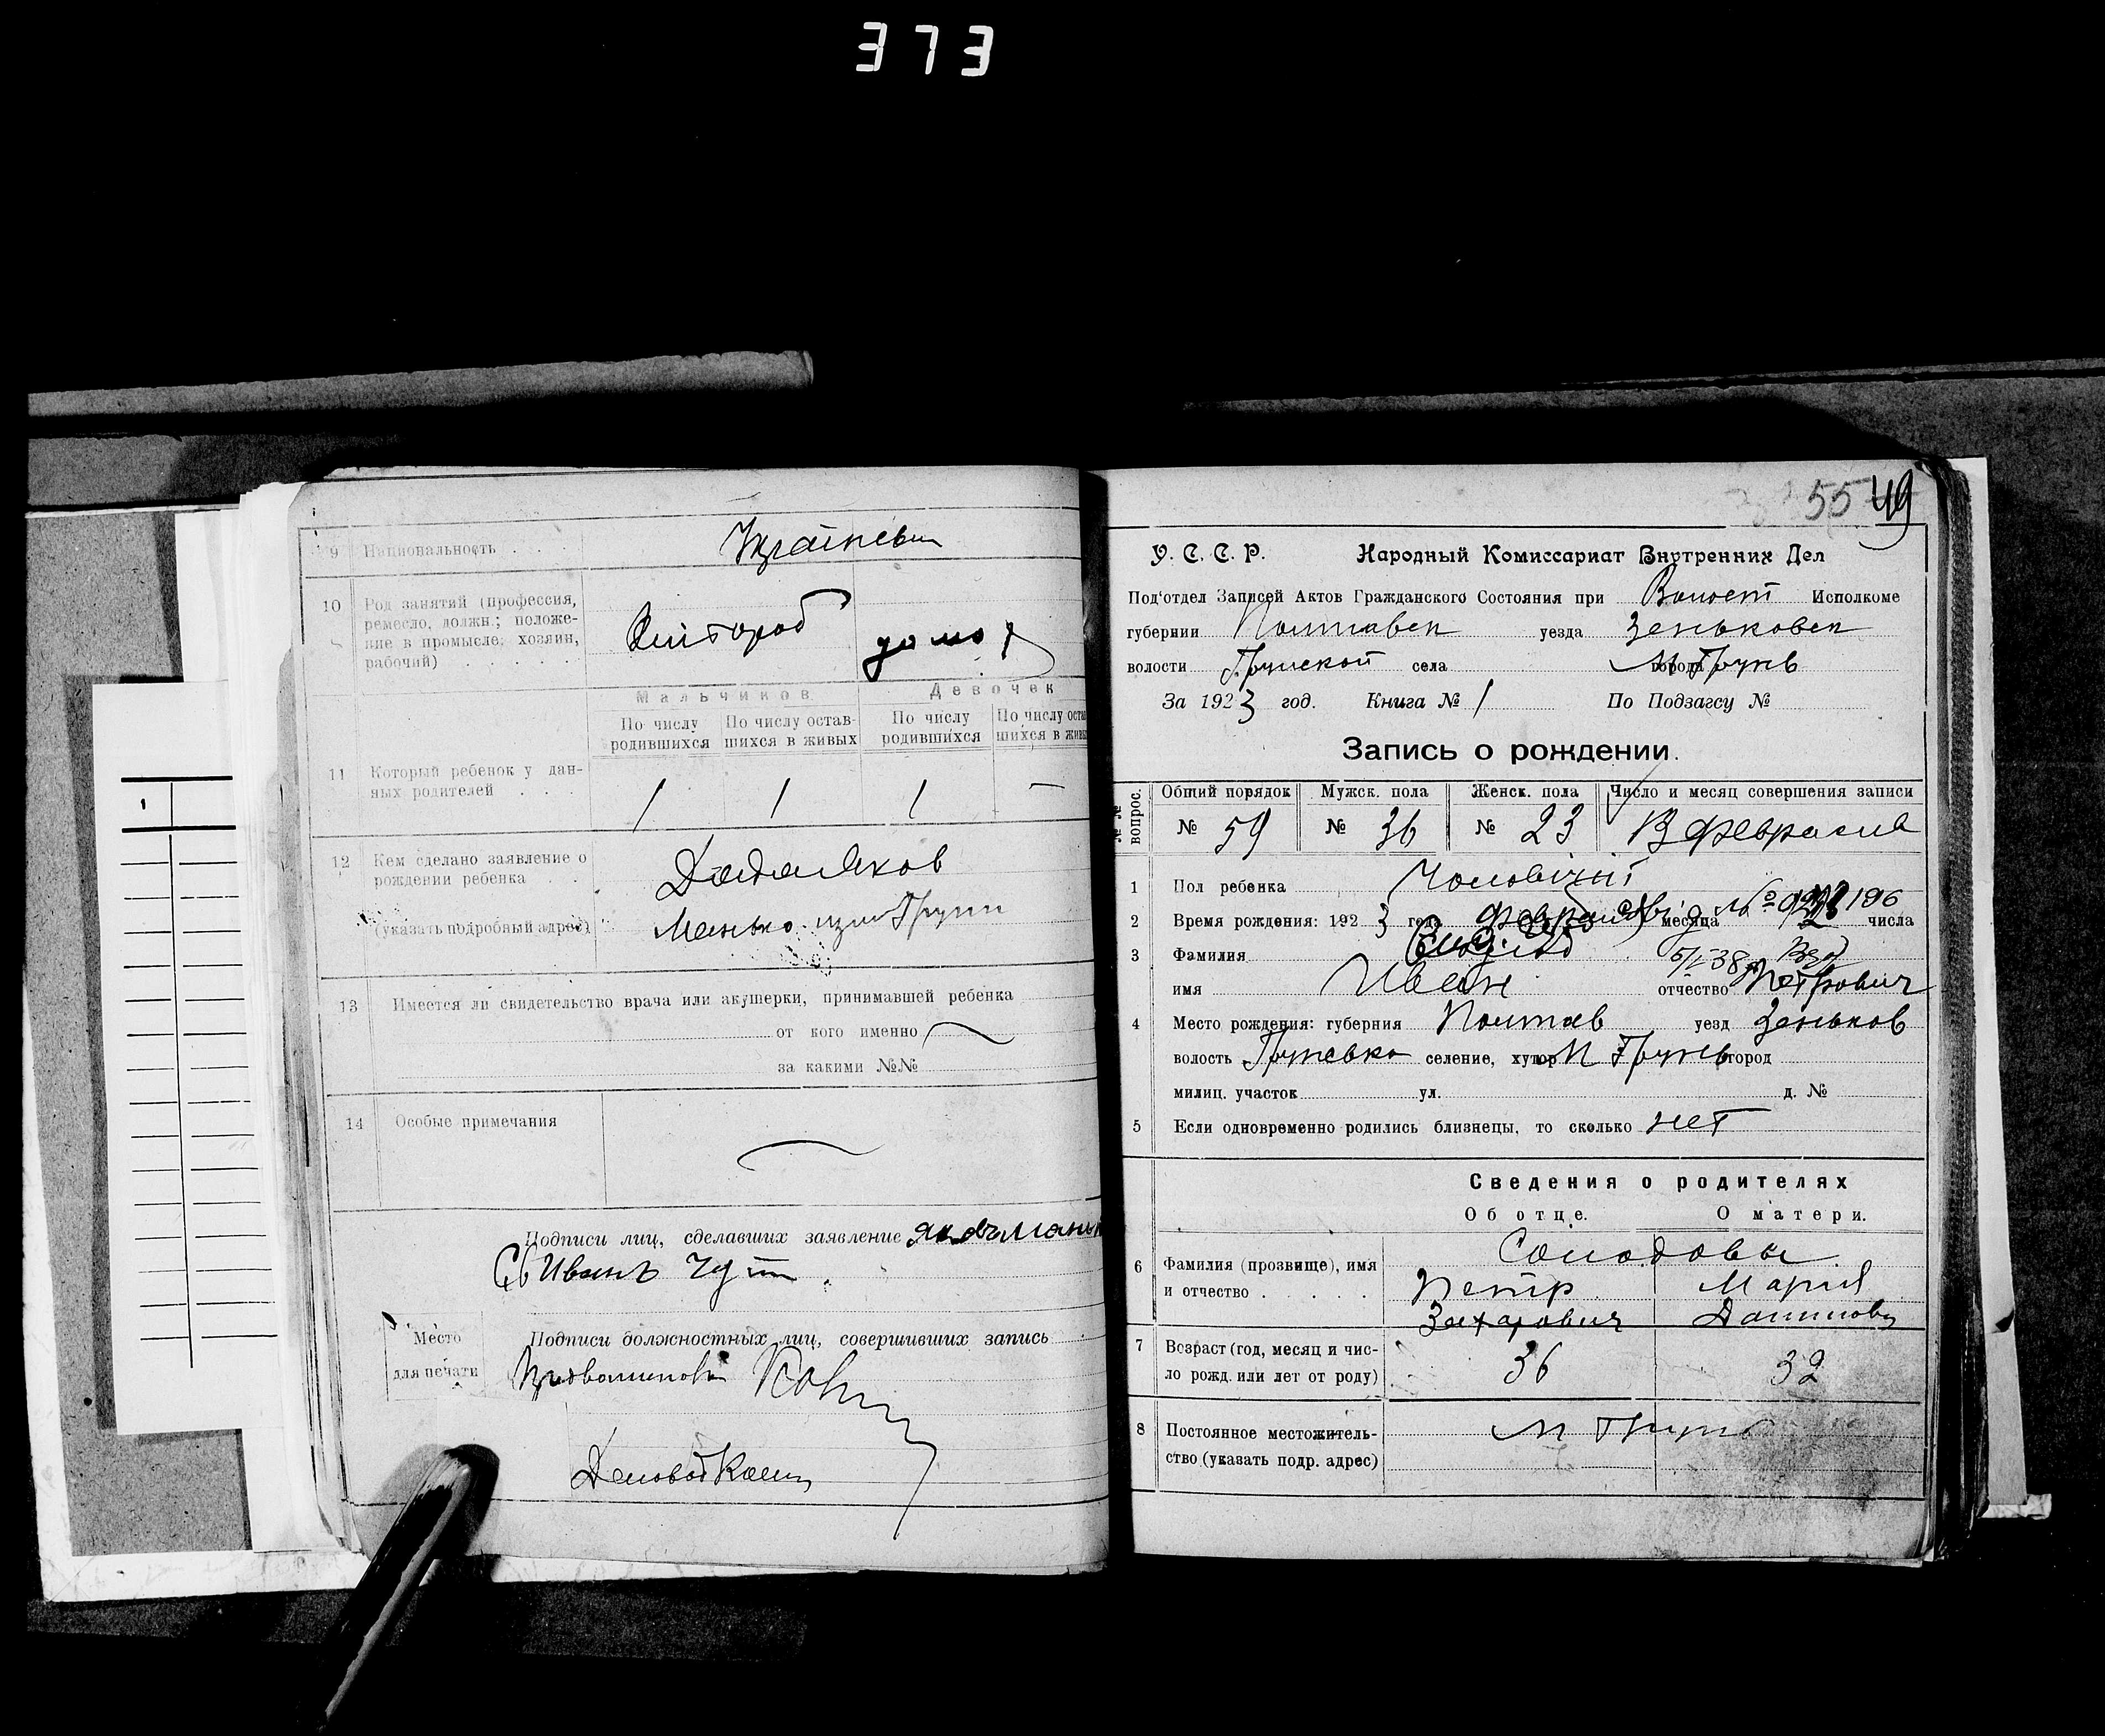 373
9 Национальность . . . .
10 Род занятий (профессия,
ремесло, должн.; положе-
ние в промысле: хозяин,
рабочий) . . . . . .
Мальчиков Девочек
По числу родившихся По числу остав-шихся в живых По числу родившихся По числу
11 Который ребенок у дан-
ных родителей . . .
1 1 1 —
12 Кем сделано заявление о
рождении ребенка . .
(указать подробный адрес)
Яков
Манько
13 Имеется ли свидетельство врача или акушерки, принимавшей ребенка
от кого именно
за какими №№
14 Особые примечания
Подписи лиц, сделавших заявление
Св Иванъ
Место
для печати
Подписи должностных лиц, совершивших запись
55 49
У. С. С. Р. Народный Комиссариат Внутренних Дел
Под'отдел Записей Актов Гражданского Состояния при Волост Исполкоме
губернии Полтавск уезда Зеньковск
волости Грунской села города М Грунь
За 1923 год. Книга № 1 По Подзагсу №
Запись о рождении.
№№ вопрос. Общий порядок Мужск. пола Женск. пола Число и месяц совершения записи
№ 59 № 36 № 23 13 февраля
1 Пол ребенка Чоловічий
2 Время рождения: 1923 года месяца числа
3 Фамилия
имя Иван отчество Петрович
4 Место рождения: губерния Полтав уезд Зеньков
волость Грунсвко селение, хутор М Грунь город
милиц. участок ул. д. №
5 Если одновременно родились близнецы, то сколько нет
Сведения о родителях
Об отце. О матери.
6 Фамилия (прозвище), имя
и отчество . . . . .
Солодовы
Петр Мария
Захарович Даниловн
7 Возраст (год, месяц и чис-
ло рожд. или лет от роду)
36 32
8 Постоянное местожитель-
ство (указать подр. адрес)
М Грунь